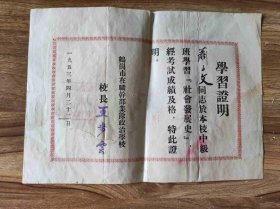 學習證明
文同志於本校中級
班學習「社會發展史」，
經考試成績及格，特此證
明。
鶴崗市在職幹部業餘政治學校
校長
一九五三年四月二十二日